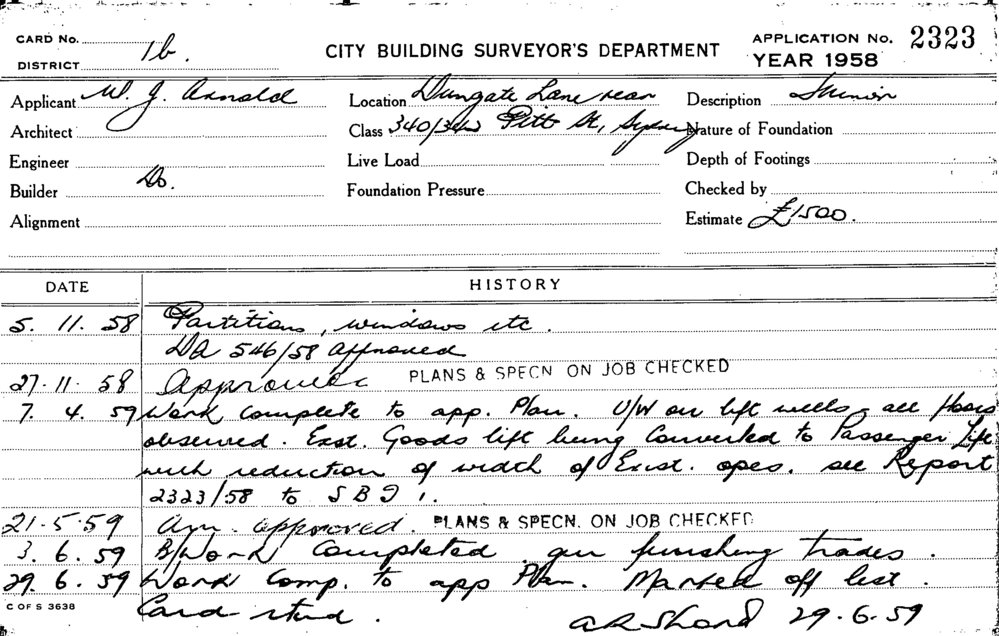 CARD No.
DISTRICT 1b.
CITY BUILDING SURVEYOR'S DEPARTMENT
APPLICATION No. 2323
YEAR 1958
Applicant W. J. Arnold
Location Dungate Lane rear
Description
Architect
Class 340/342 Pitt St, Sydney
Nature of Foundation
Engineer
Live Load
Depth of Footings
Builder Do.
Foundation Pressure
Checked by
Alignment
Estimate £1500.
DATE HISTORY
5. 11. 58 Partitions, windows etc.
DA 546/58 approved
27. 11. 58 Approved PLANS & SPECN ON JOB CHECKED
7. 4. 59 Work complete to app. Plan. U/W on lift wells all floors
observed. Exst. Goods lift being Converted to Passenger Lift
with reduction of width of Exist. opes. see Report
2323/58 to S B I 1.
21-5-59 Am. approved. PLANS & SPECN. ON JOB CHECKED
3. 6. 59 B/Work Completed finishing trades.
29. 6. 59 Work Comp. to app Plan. Marked off list.
Card retnd.
29-6-59
C OF S 3638